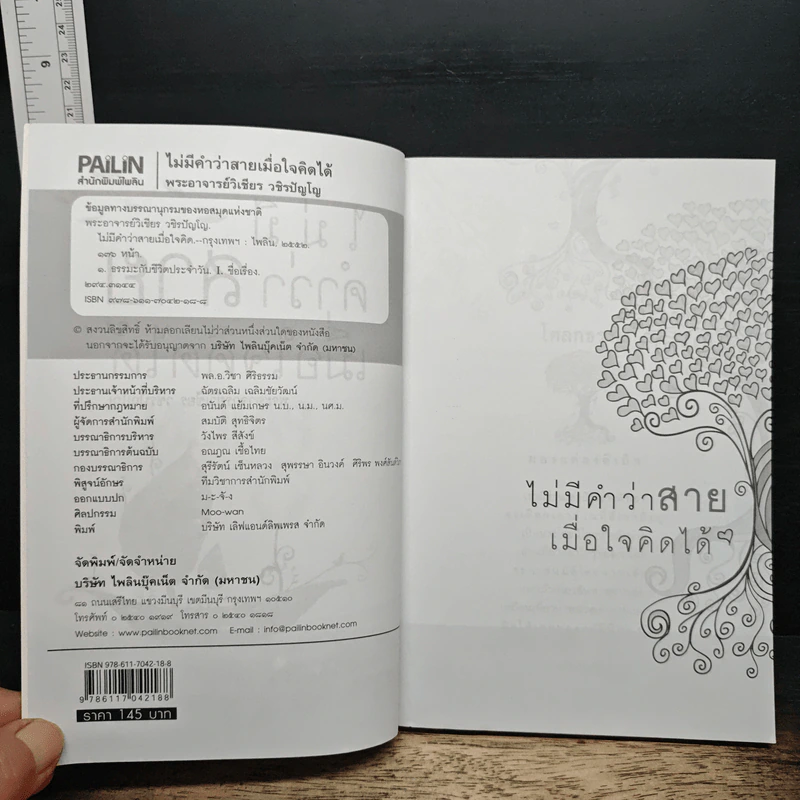 9
25
24
23
22
21
PAiLiN
สำนักพิมพ์ไพลิน
ไม่มีคำว่าสายเมื่อใจคิดได้
พระอาจารย์วิเชียร วชิรปัญโญ
ข้อมูลทางบรรณานุกรมของหอสมุดแห่งชาติ
พระอาจารย์วิเชียร วชิรปัญโญ.
ไม่มีคำว่าสายเมื่อใจคิด.--กรุงเทพฯ : ไพลิน. ๒๕๕๒.
๑๗๖ หน้า.
๑. ธรรมะกับชีวิตประจำวัน. I. ชื่อเรื่อง.
๒๙๔.๓๑๔๔
ISBN ๙๗๘-๖๑๑-๗๐๔๒-๑๘-๘
© สงวนลิขสิทธิ์ ห้ามลอกเลียนไม่ว่าส่วนหนึ่งส่วนใดของหนังสือ
นอกจากจะได้รับอนุญาตจาก บริษัท ไพลินบุ๊คเน็ต จำกัด (มหาชน)
ประธานกรรมการ พล.อ.วิชา ศิริธรรม
ประธานเจ้าหน้าที่บริหาร ฉัตรเฉลิม เฉลิมชัยวัฒน์
ที่ปรึกษากฎหมาย อนันต์ แย้มเกษร น.บ., น.ม., นศ.ม.
ผู้จัดการสำนักพิมพ์ สมบัติ สุทธิจิตร
บรรณาธิการบริหาร วังไพร สีสังข์
บรรณาธิการต้นฉบับ อณภูณ เชื้อไทย
กองบรรณาธิการ สุรีรัตน์ เซ็นหลวง สุพรรษา อินวงค์ ศิริพร
พิสูจน์อักษร ทีมวิชาการสำนักพิมพ์
ออกแบบปก ม-ะ-จั-ง
ศิลปกรรม Moo-wan
พิมพ์ บริษัท เลิฟแอนด์ลิพเพรส จำกัด
จัดพิมพ์/จัดจำหน่าย
บริษัท ไพลินบุ๊คเน็ต จำกัด (มหาชน)
๘๑ ถนนเสรีไทย แขวงมีนบุรี เขตมีนบุรี กรุงเทพฯ ๑๐๕๑๐
โทรศัพท์ ๐ ๒๕๔๐ ๑๙๑๙ โทรสาร ๐ ๒๕๔๐ ๑๘๑๘
Website : www.pailinbooknet.com E-mail : info@pailinbooknet.com
ISBN 978-611-7042-18-8
9 786117 042188
ราคา 145 บาท
ไม่มีคำว่าสาย
เมื่อใจคิดได้